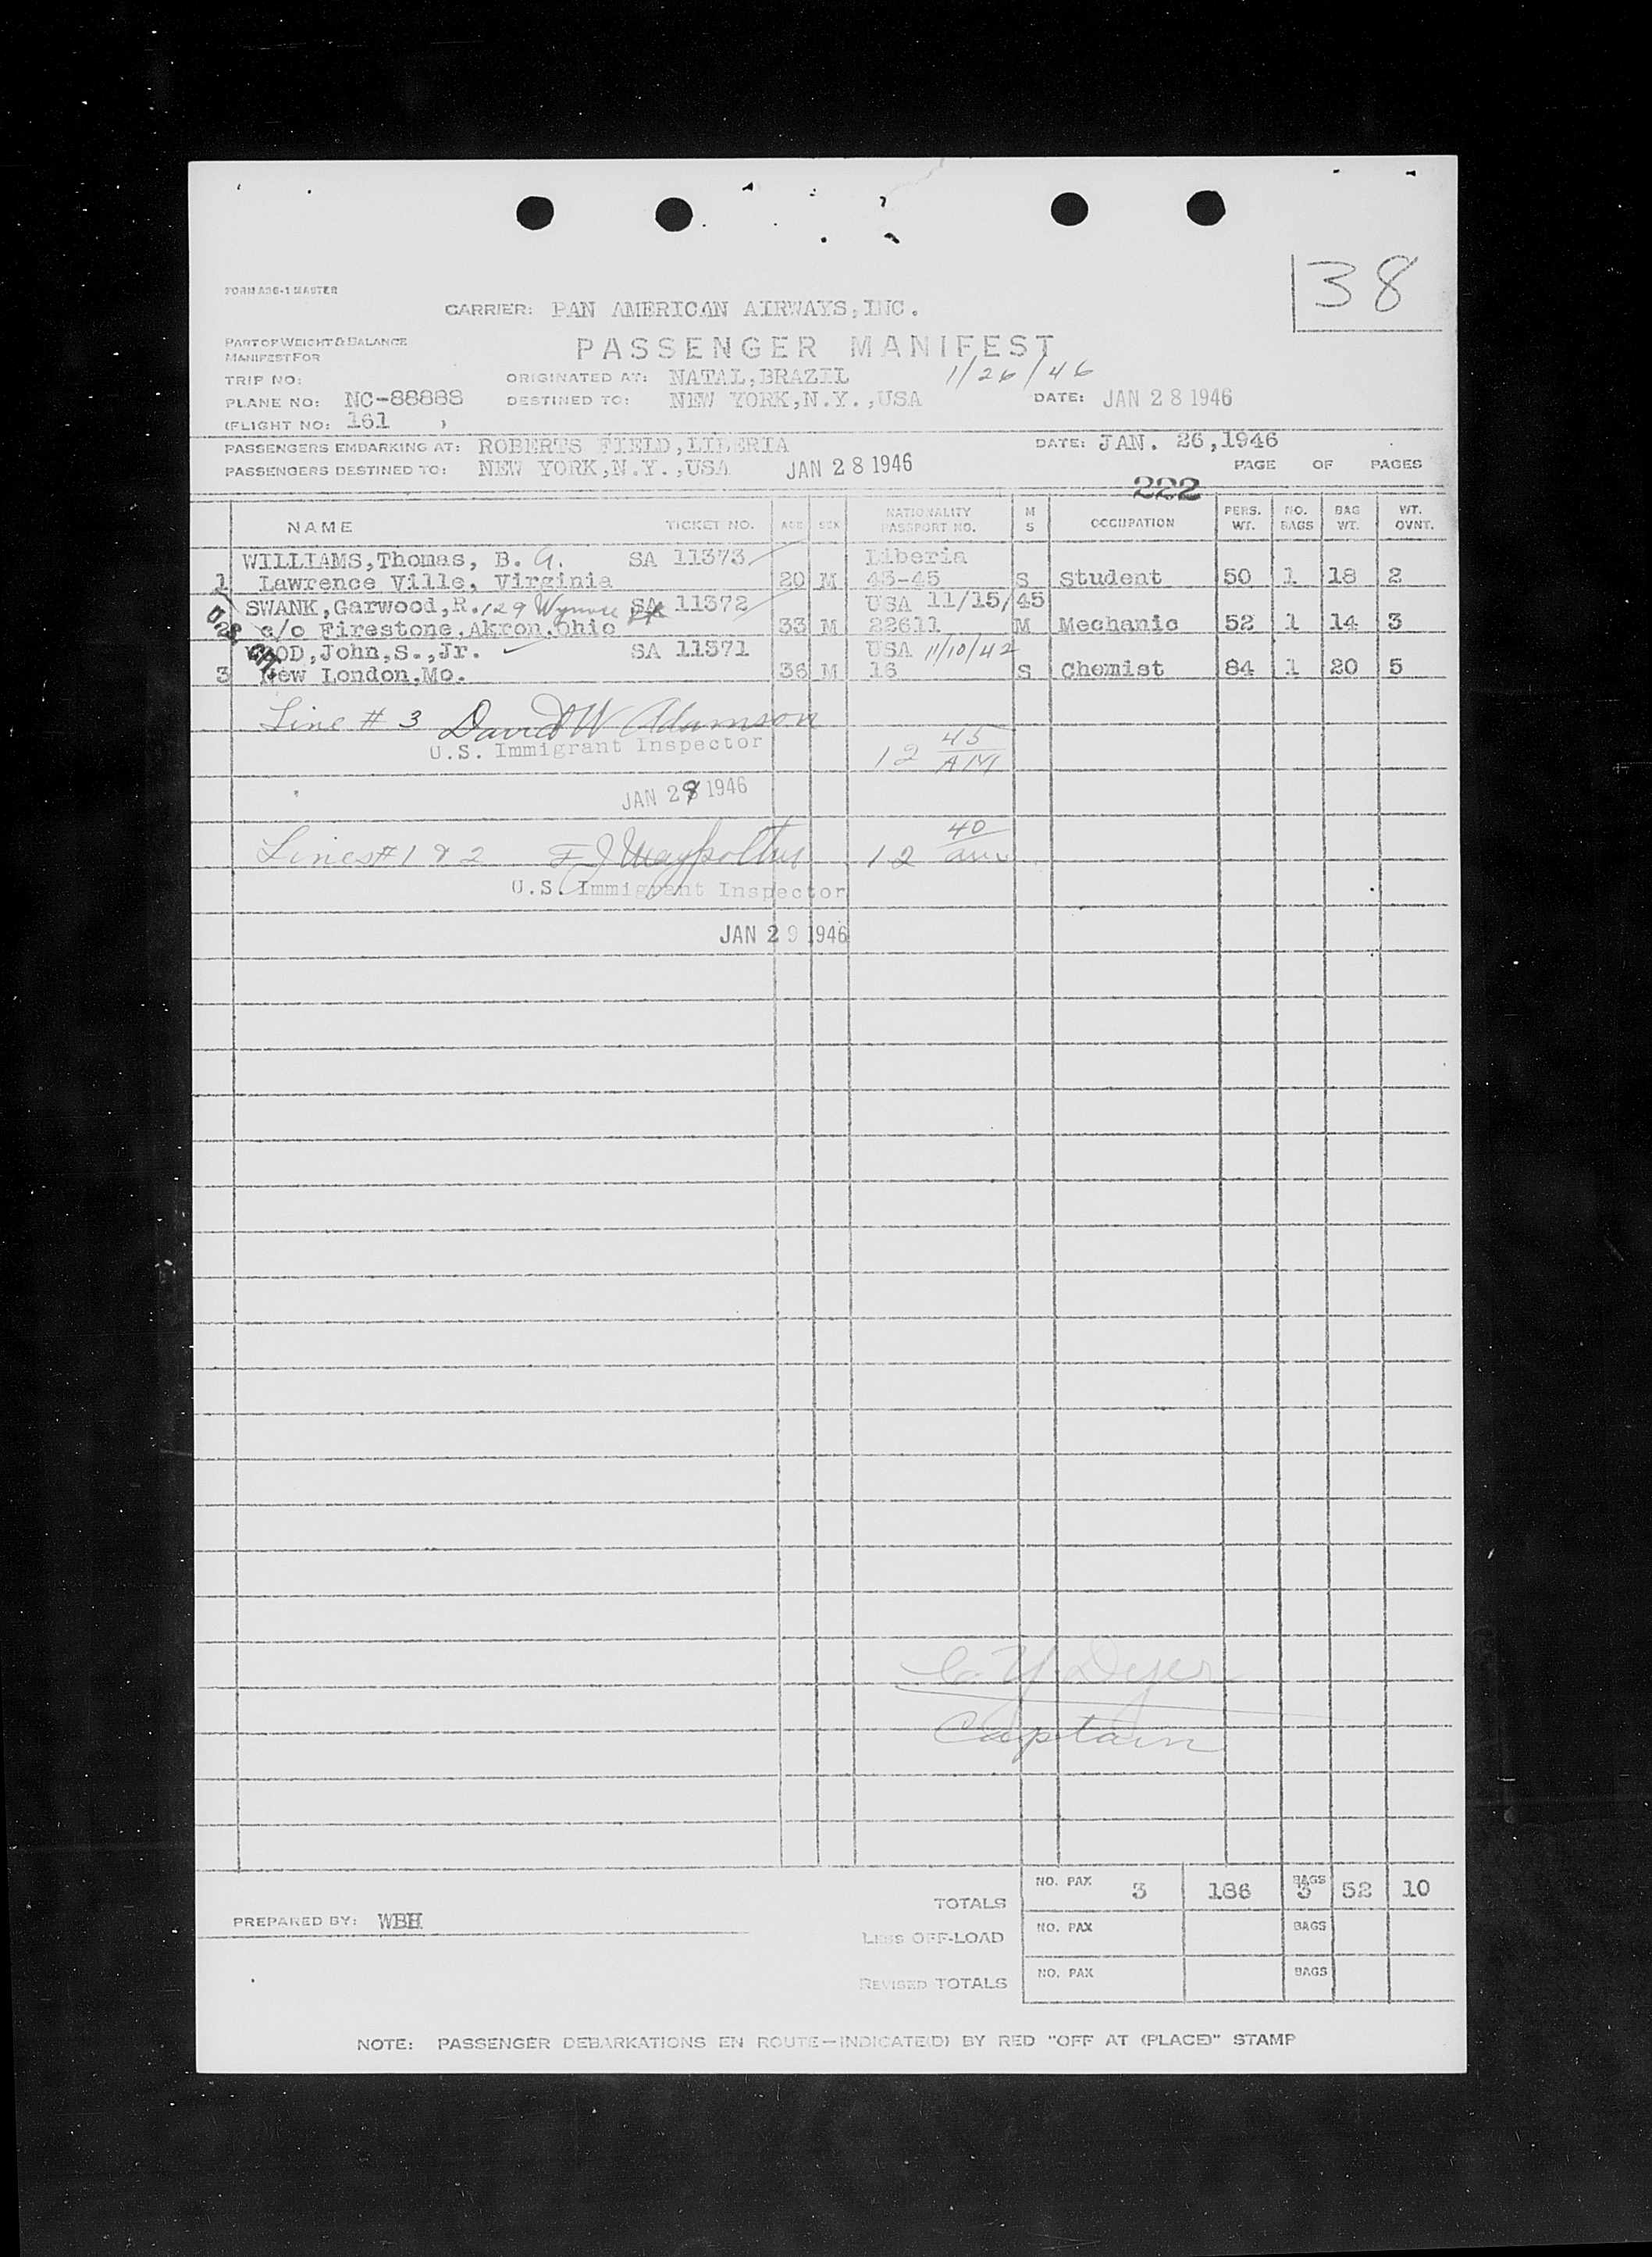 38
FORM A36-1 MASTER
CARRIER: PAN AMERICAN AIRWAYS, INC.
PART OF WEIGHT & BALANCE
MANIFEST FOR
PASSENGER MANIFEST
TRIP NO:
ORIGINATED AT: NATAL, BRAZIL 1/26/46
PLANE NO: NC-88888 DESTINED TO: NEW YORK, N.Y., USA DATE: JAN 28 1946
(FLIGHT NO: 161 )
PASSENGERS EMBARKING AT: ROBERTS FIELD, LIBERIA DATE: JAN. 26, 1946
PASSENGERS DESTINED TO: NEW YORK, N.Y., USA JAN 28 1946 PAGE OF PAGES
222
NAME TICKET NO. AGE SEX NATIONALITY PASSPORT NO. M S OCCUPATION PERS. WT. NO. BAGS BAG WT. WT. OVNT.
WILLIAMS, Thomas, B. G. SA 11373 Liberia
1 Lawrence Ville, Virginia 20 M 45-45 S Student 50 1 18 2
SWANK, Garwood, R. 129 SA 11372 USA 11/15/45
2 c/o Firestone, Akron, Ohio 33 M 22611 M Mechanic 52 1 14 3
WOOD, John, S., Jr. SA 11371 USA 11/10/42
3 New London, Mo. 36 M 16 S Chemist 84 1 20 5
U.S. CIT.
Line # 3 David W Adamson
U.S. Immigrant Inspector 12 45 AM
JAN 29 1946
Lines # 1 & 2 12 40 am
U.S. Immigrant Inspector
JAN 29 1946
C. Y. Dyer
Captain
TOTALS NO. PAX 3 186 BAGS 3 52 10
PREPARED BY: WBH
LESS OFF-LOAD NO. PAX BAGS
REVISED TOTALS NO. PAX BAGS
NOTE: PASSENGER DEBARKATIONS EN ROUTE—INDICATE(D) BY RED "OFF AT (PLACE)" STAMP